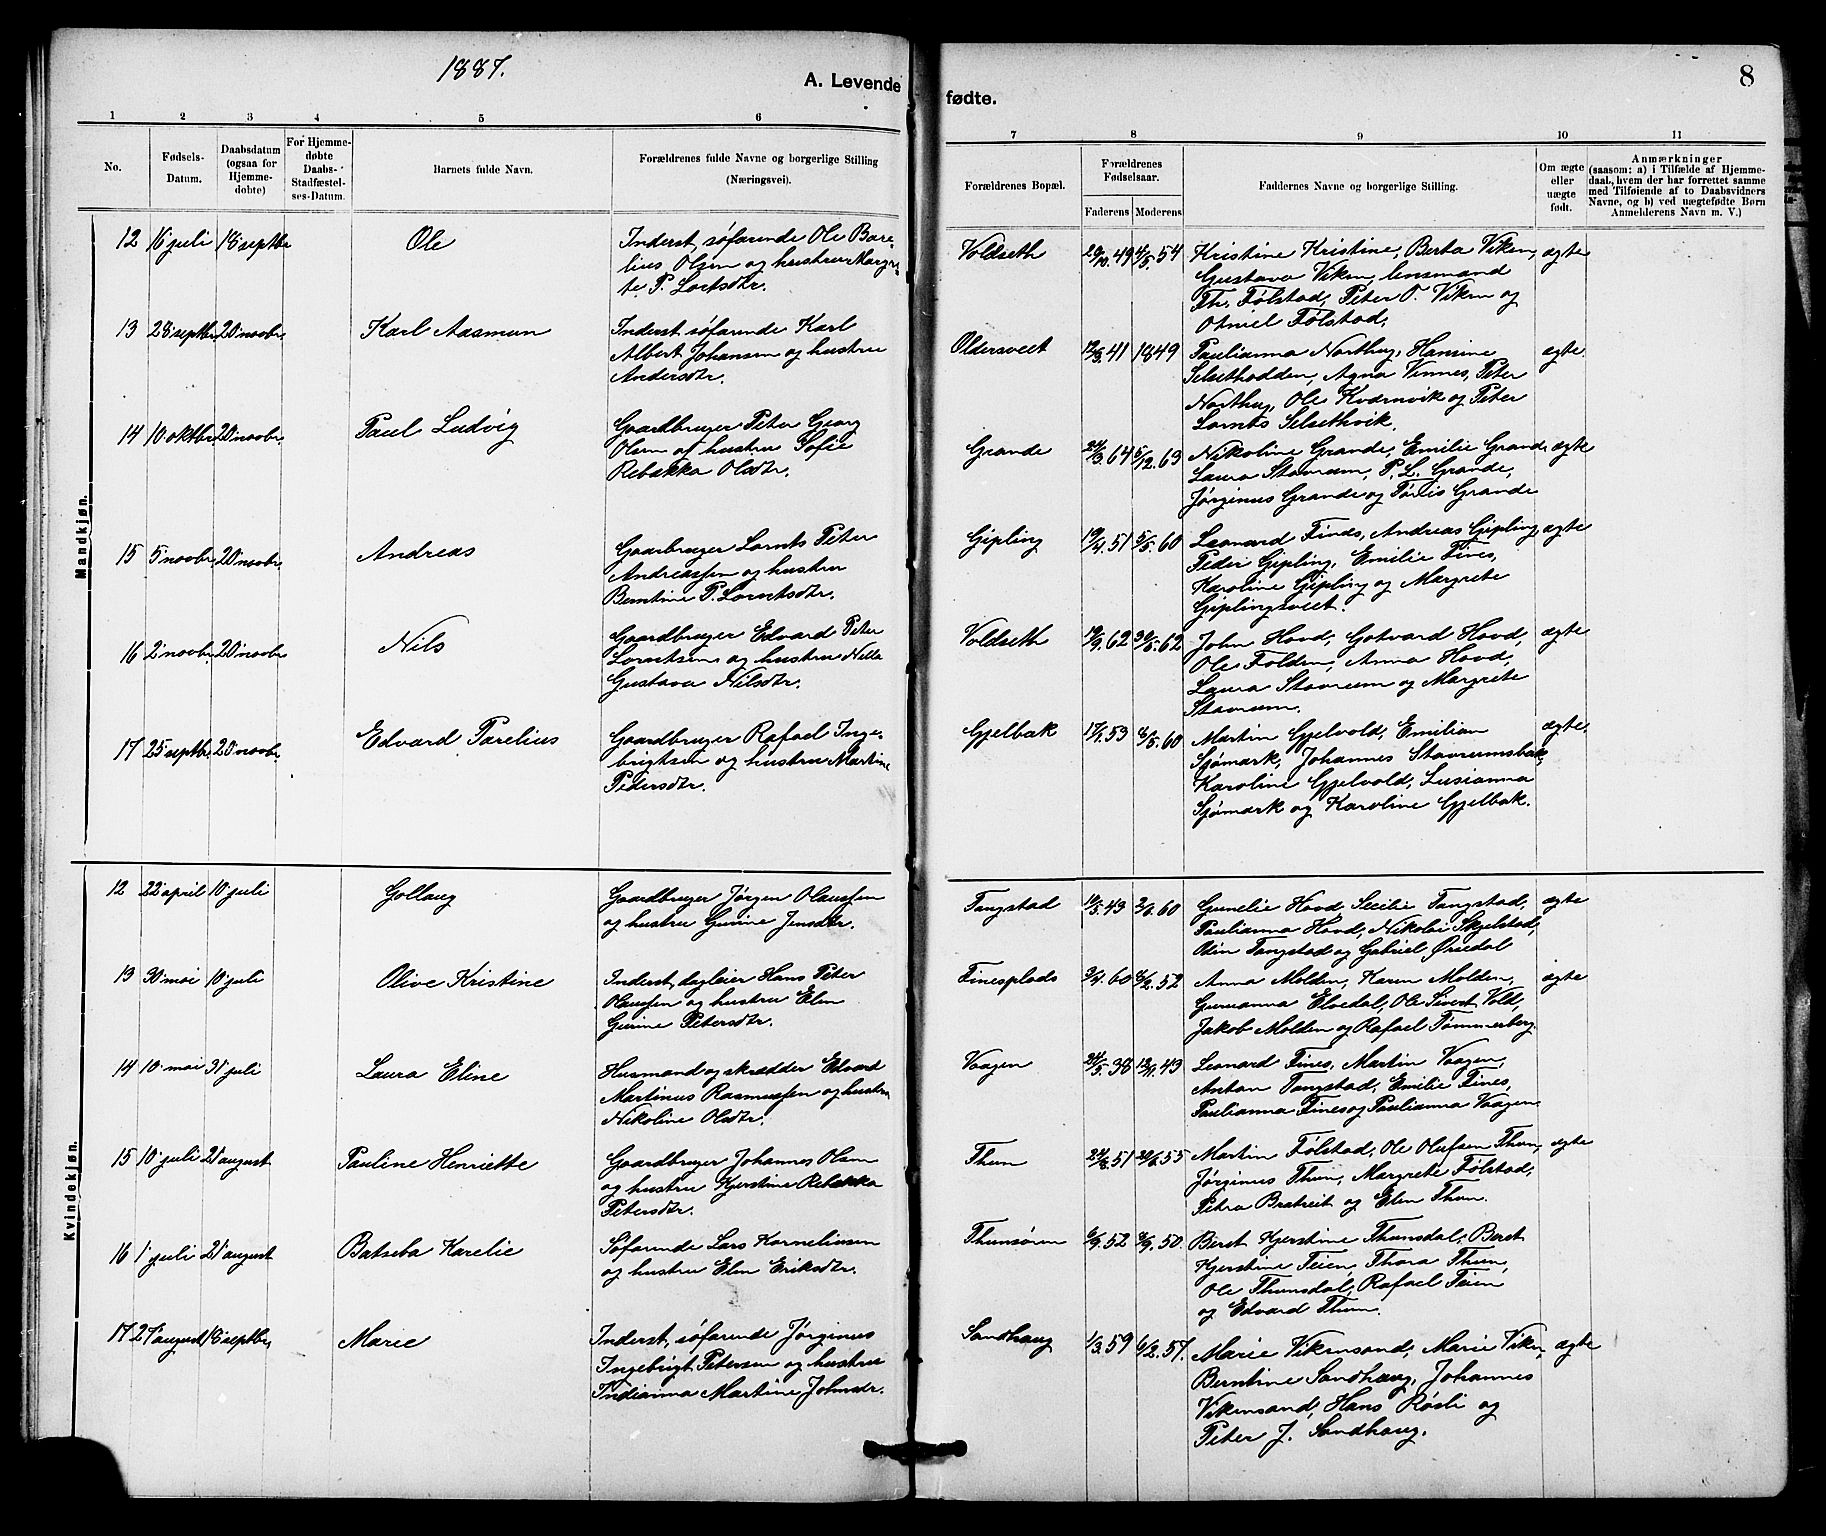 1887.
A. Levende
fødte.
8
1 2 3 4 5 6 7 8 9 10 11
No.
Fødsels-
Datum.
Daabsdatum
(ogsaa for
Hjemme-
døbte)
For Hjemme-
døbte
Daabs-
Stadfæstel-
ses-Datum.
Barnets fulde Navn.
Forældrenes fulde Navne og borgerlige Stilling
(Næringsvei).
Forældrenes Bopæl.
Forældrenes
Fødselsaar.
Faderens Moderens
Faddernes Navne og borgerlige Stilling.
Om ægte
eller
uægte
født.
Anmærkninger
(saasom: a) i Tilfælde af Hjemme-
daab, hvem der har forrettet samme
med Tilføiende af to Daabsvidners
Navne, og b) ved uægtefødte Børn
Anmelderens Navn m. V.)
Mandkjøn.
12 16 juli 18 septbr Ole
Inderst, søfarende Ole Bare-
lius Olsen og hustru Margre-
te P. Lorntsdtr.
Voldseth 20/10.49 4/5.54
Kristine Kristine, Berta Viken,
Gustava Viken, lensmand
Th. Følstad, Peter O. Viken og
Otniel Følstad.
ægte
13 28 septbr 20 novbr. Karl Aasmun
Inderst, søfarende Karl
Albert Johansen og hustru
Andersdtr.
Oldersveet 12/3.41 1849
Paulianna Northug, Hansine
Selsethodden, Agna Vinnes, Peter
Northug, Ole Kvernvik og Peter
Lornts Selsethvik.
ægte.
14 10 oktbr. 20 novbr. Paul Ludvig
Gaardbruger Peter Georg
Olsen og hustru Sofie
Rebekka Olsdtr.
Grande 24/3.64 5/12.63
Nikoline Grande, Emilie Grande,
Laura Stavrum, P. L. Grande,
Jørginus Grande og Tørlis Grande
ægte
15 5 novbr. 20 novbr. Andreas
Gaarbruger Lornts Peter
Andreassen og hustru
Berntine P. Lorntsdtr.
Gipling 19/4.51 5/5.60
Leonard Finds, Andreas Gipling,
Peder Gipling, Emilie Fines,
Karoline Gipling og Margrete
Giplingsveet.
ægte
16 2 novbr. 20 novbr. Nils
Gaardbruger Edvard Peter
Lorntsen og hustru Nella
Gustava Nilsdtr.
Voldseth 19/9.62 30/5.62
John Hovd, Gotvard Hovd,
Ole Folden, Anna Hovd,
Laura Stavrum og Margrete
Stavrum.
ægte
17 25 septbr. 20 novbr. Edvard Parelius
Gaardbruger Rafael Inge-
brigtsen og hustru Martine
Pedersdtr.
Gjelbak 17/1.53 6/5.60
Martin Gjelvold, Emilian
Sjømark, Johannes Stavrumsbak,
Karoline Gjelvold, Lusianna
Sjømark og Karoline Gjelbak.
ægte.
Kvindekjøn.
12 22 april 10 juli Gollaug
Gaardbruger Jørgen Olaussen
og hustru Gurine Jensdtr.
Tangstad 14/5.43 2/6.60
Gunelie Hovd, Secilie Tangstad,
Paulianna Hovd, Nikolai Skjelstad,
Odin Tangstad og Gabriel Øruedal
ægte
13 30 mai 10 juli Olive Kristine
Inderst, dagleier Hans Peter
Olaussen og hustru Elen
Gurine Petersdtr.
Finesplads 3/4.60 8/2.52
Anna Molden, Karen Molden,
Gureanna Elvedal, Ole Sivert Vold,
Jakob Molden og Rafael Tømmerberg.
ægte
14 10 mai 31 juli Laura Eline
Husmand og skrædder Edvard
Martinus Rasmussen og hustru
Nikoline Olsdtr.
Vaagen 24/5.38 12/11.43
Leonard Fines, Martin Vaagen,
Anton Tangstad, Emilie Fines,
Paulianna Fines og Paulianna Vaagen
15 10 juli 21 august Pauline Henriette
Gaardbruger Johannes Olsen
og hustru Kjerstine Rebekka
Petersdtr.
Thun 24/8.51 20/6.55
Martin Følstad, Ole Olufsen Thun,
Jørginus Thun, Margrete Følstad,
Petra Bratreit og Elen Thun.
ægte
16 1 juli 21 august Batseba Karelie
Søfarende Lars Korneliusen
og hustru Elen Eriksdtr.
Thunsøren 6/9.52 3/9.50
Beret Kjerstine Thunsdal, Beret
Kjerstine Teien, Thora Thun,
Ole Thunsdal, Rafael Teien
og Edvard Thun.
17 27 august 18 septbr. Marie
Inderst, søfarende Jørginus
Ingebrigt Petersen og hustru
Indianna Martine Johnsdtr.
Sandhaug 1/3.59 6/2.57.
Marie Vikensand, Marie Viken,
Berntine Sandhaug, Johannes
Vikensand, Hans Røsli og
Peter J. Sandhaug.
ægte